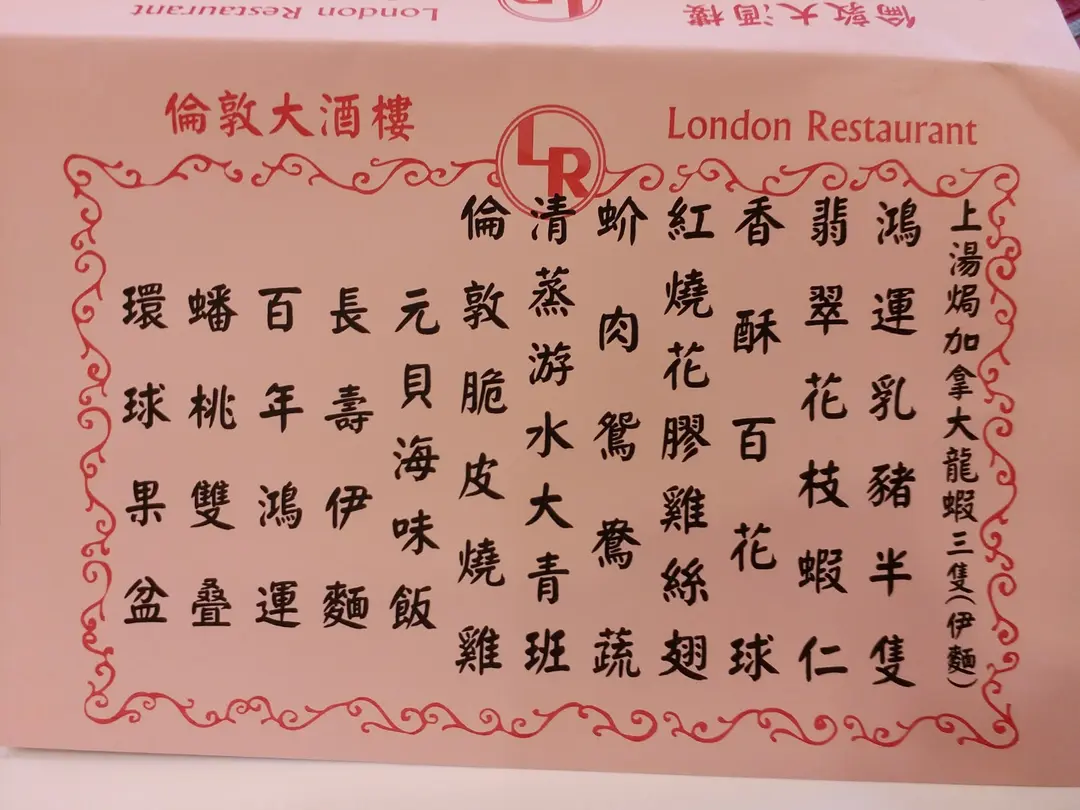 London Restaurant
LR
倫敦大酒樓
倫敦大酒樓
LR
London Restaurant
上湯焗加拿大龍蝦三隻(伊麵)
鴻運乳豬半隻
翡翠花枝蝦仁
香酥百花球
紅燒花膠雞絲翅
蚧肉鴛鴦蔬
清蒸游水大青班
倫敦脆皮燒雞
元貝海味飯
長壽伊麵
百年鴻運
蟠桃雙疊
環球果盆